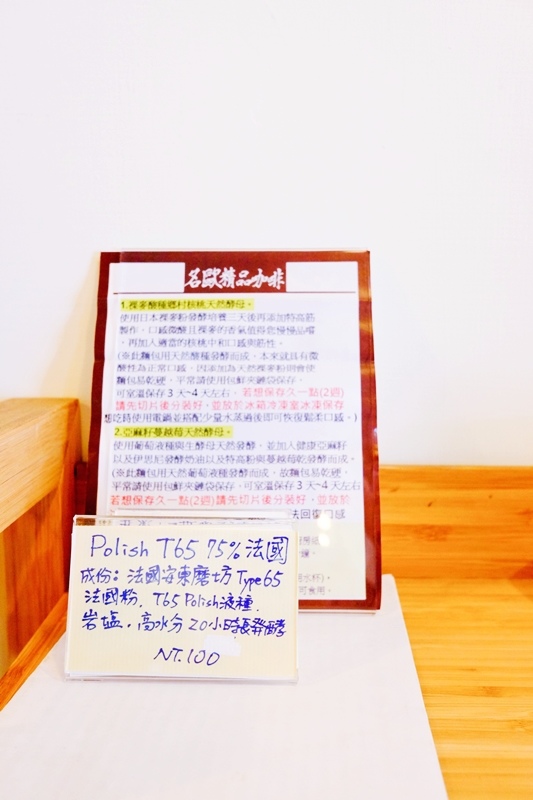 名歐精品咖啡
1.裸麥酸種鄉村核桃天然酵母。
使用日本裸麥粉發酵培養三天後再添加特高筋
製作、口感微酸且裸麥的香氣值得您慢慢品嚐
,再加入適當的核桃中和口感與筋性。
(※此麵包用天然酸種發酵而成、本來就具有微
酸性為正常口感、因添加為天然裸麥粉則會使
麵包易乾硬,平常請使用包鮮夾鏈袋保存、
可室溫保存3天~4天左右、若想保存久一點(2週)
請先切片後分裝好,並放於冰箱冷凍室冰凍保存
想吃時使用電鍋並搭配少量水蒸過後即可恢復鬆柔口感。)
2.亞麻籽蔓越莓天然酵母。
使用葡萄液種與生酵母天然發酵、並加入健康亞麻籽
以及伊思尼發酵奶油以及特高粉與蔓越莓乾發酵而成。
(※此麵包用天然葡萄液種發酵而成、故麵包易乾硬,
平常請使用包鮮夾鏈袋保存、可室溫保存3天~4天左右
若想保存久一點(2週)請先切片後分裝好,並放於
法回復口感
可食用。
Polish T65 75% 法國
成份: 法國安東磨坊 Type65
法國粉. T65 Polish液種.
岩塩. 高水分 20小時長發酵
NT.100